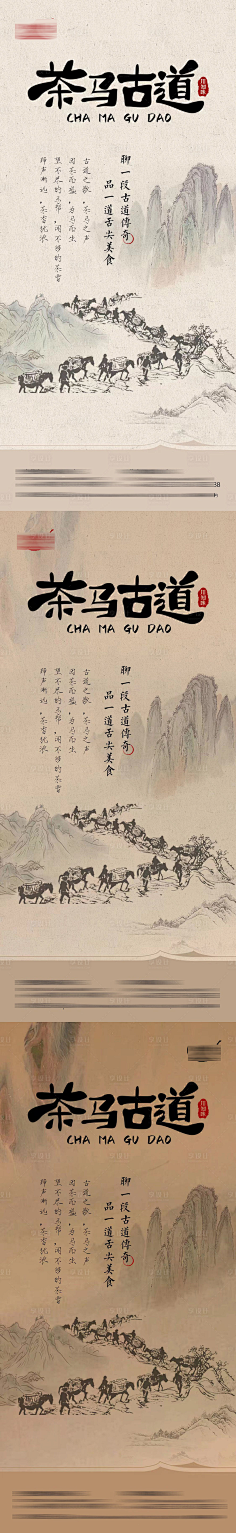 茶马古道
CHA MA GU DAO
聊一段古道傳奇
品一道舌尖美食
古道之歌,茶马之声
因茶而盛,为马而生
望不尽的马帮,闻不够的茶香
蹄声渐远,茶香犹浓
茶马古道
CHA MA GU DAO
聊一段古道傳奇
品一道舌尖美食
古道之歌,茶马之声
因茶而盛,为马而生
望不尽的马帮,闻不够的茶香
蹄声渐远,茶香犹浓
茶马古道
CHA MA GU DAO
聊一段古道傳奇
品一道舌尖美食
古道之歌,茶马之声
因茶而盛,为马而生
望不尽的马帮,闻不够的茶香
蹄声渐远,茶香犹浓